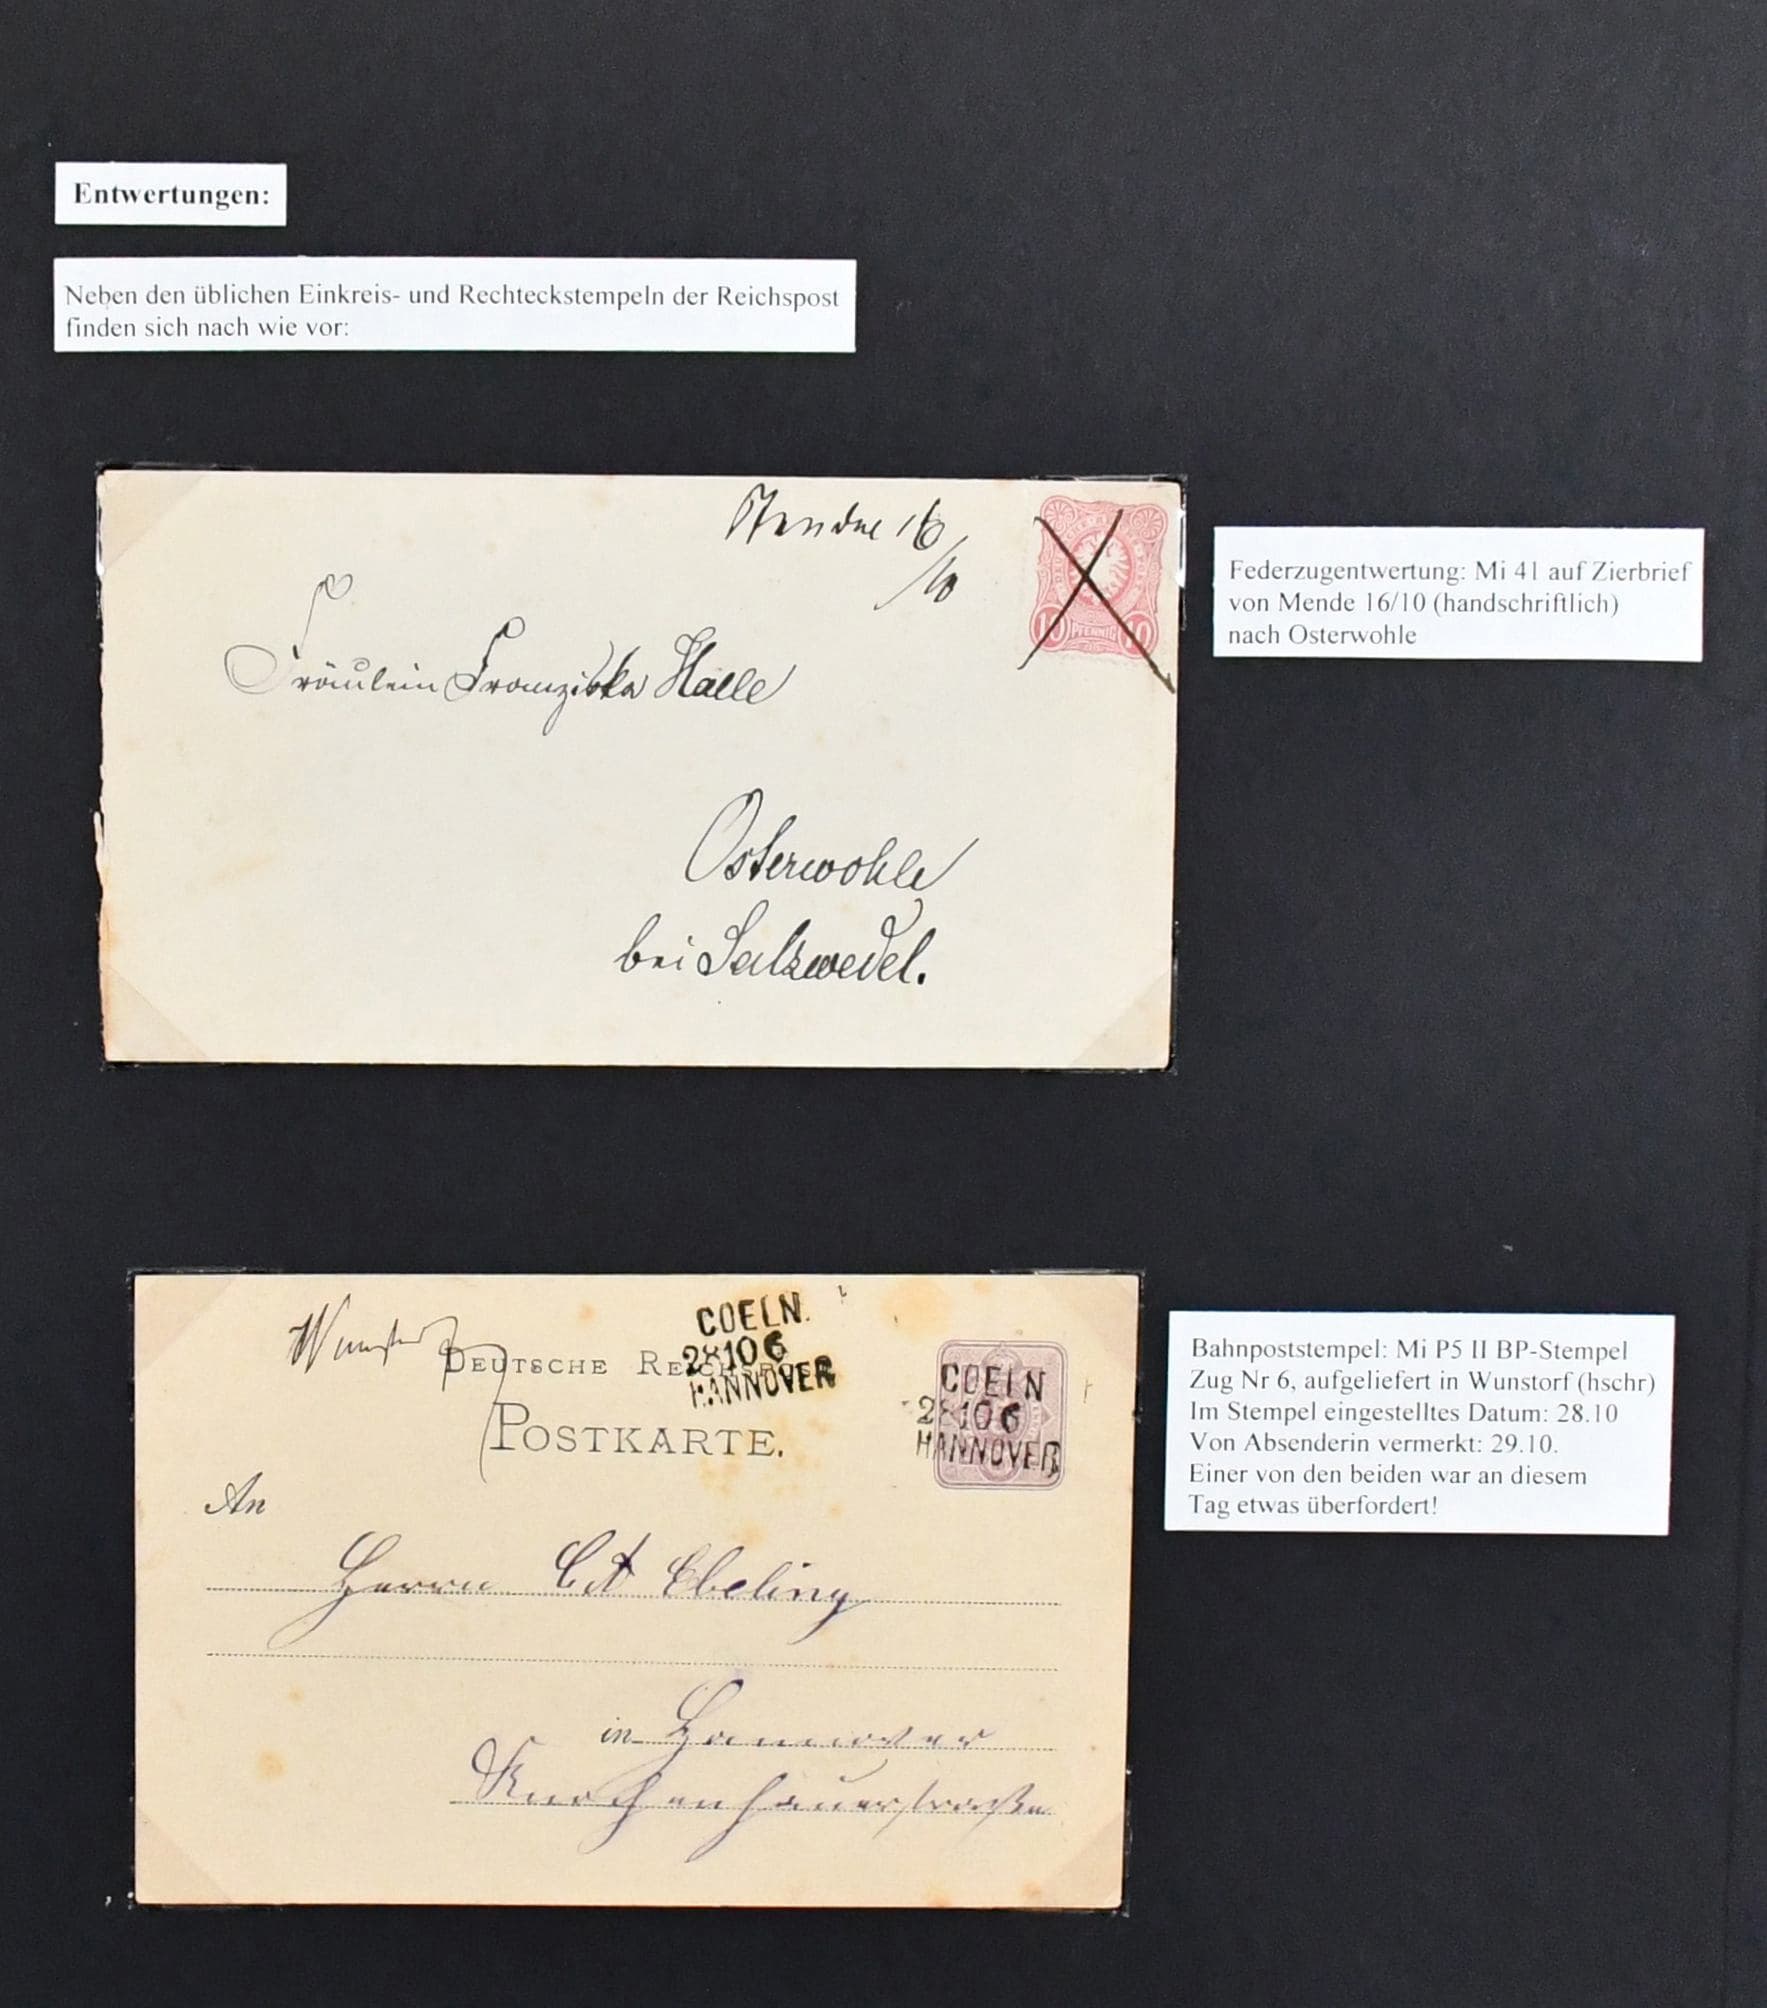 Entwertungen:
Neben den üblichen Einkreis- und Rechteckstempeln der Reichspost
finden sich nach wie vor:
Mende 16
/10
10 PFENNIG 10
Fräulein Franziska Halle
Osterwohle
bei Salzwedel.
Federzugentwertung: Mi 41 auf Zierbrief
von Mende 16/10 (handschriftlich)
nach Osterwohle
COELN.
28 10 6
HANNOVER
Wunstorf
DEUTSCHE REICHSPOST
POSTKARTE.
COELN
28 10 6
HANNOVER
An
Herrn C A Ebeling
in Hannover
Knochenhauerstraße
Bahnpoststempel: Mi P5 II BP-Stempel
Zug Nr 6, aufgeliefert in Wunstorf (hschr)
Im Stempel eingestelltes Datum: 28.10
Von Absenderin vermerkt: 29.10.
Einer von den beiden war an diesem
Tag etwas überfordert!